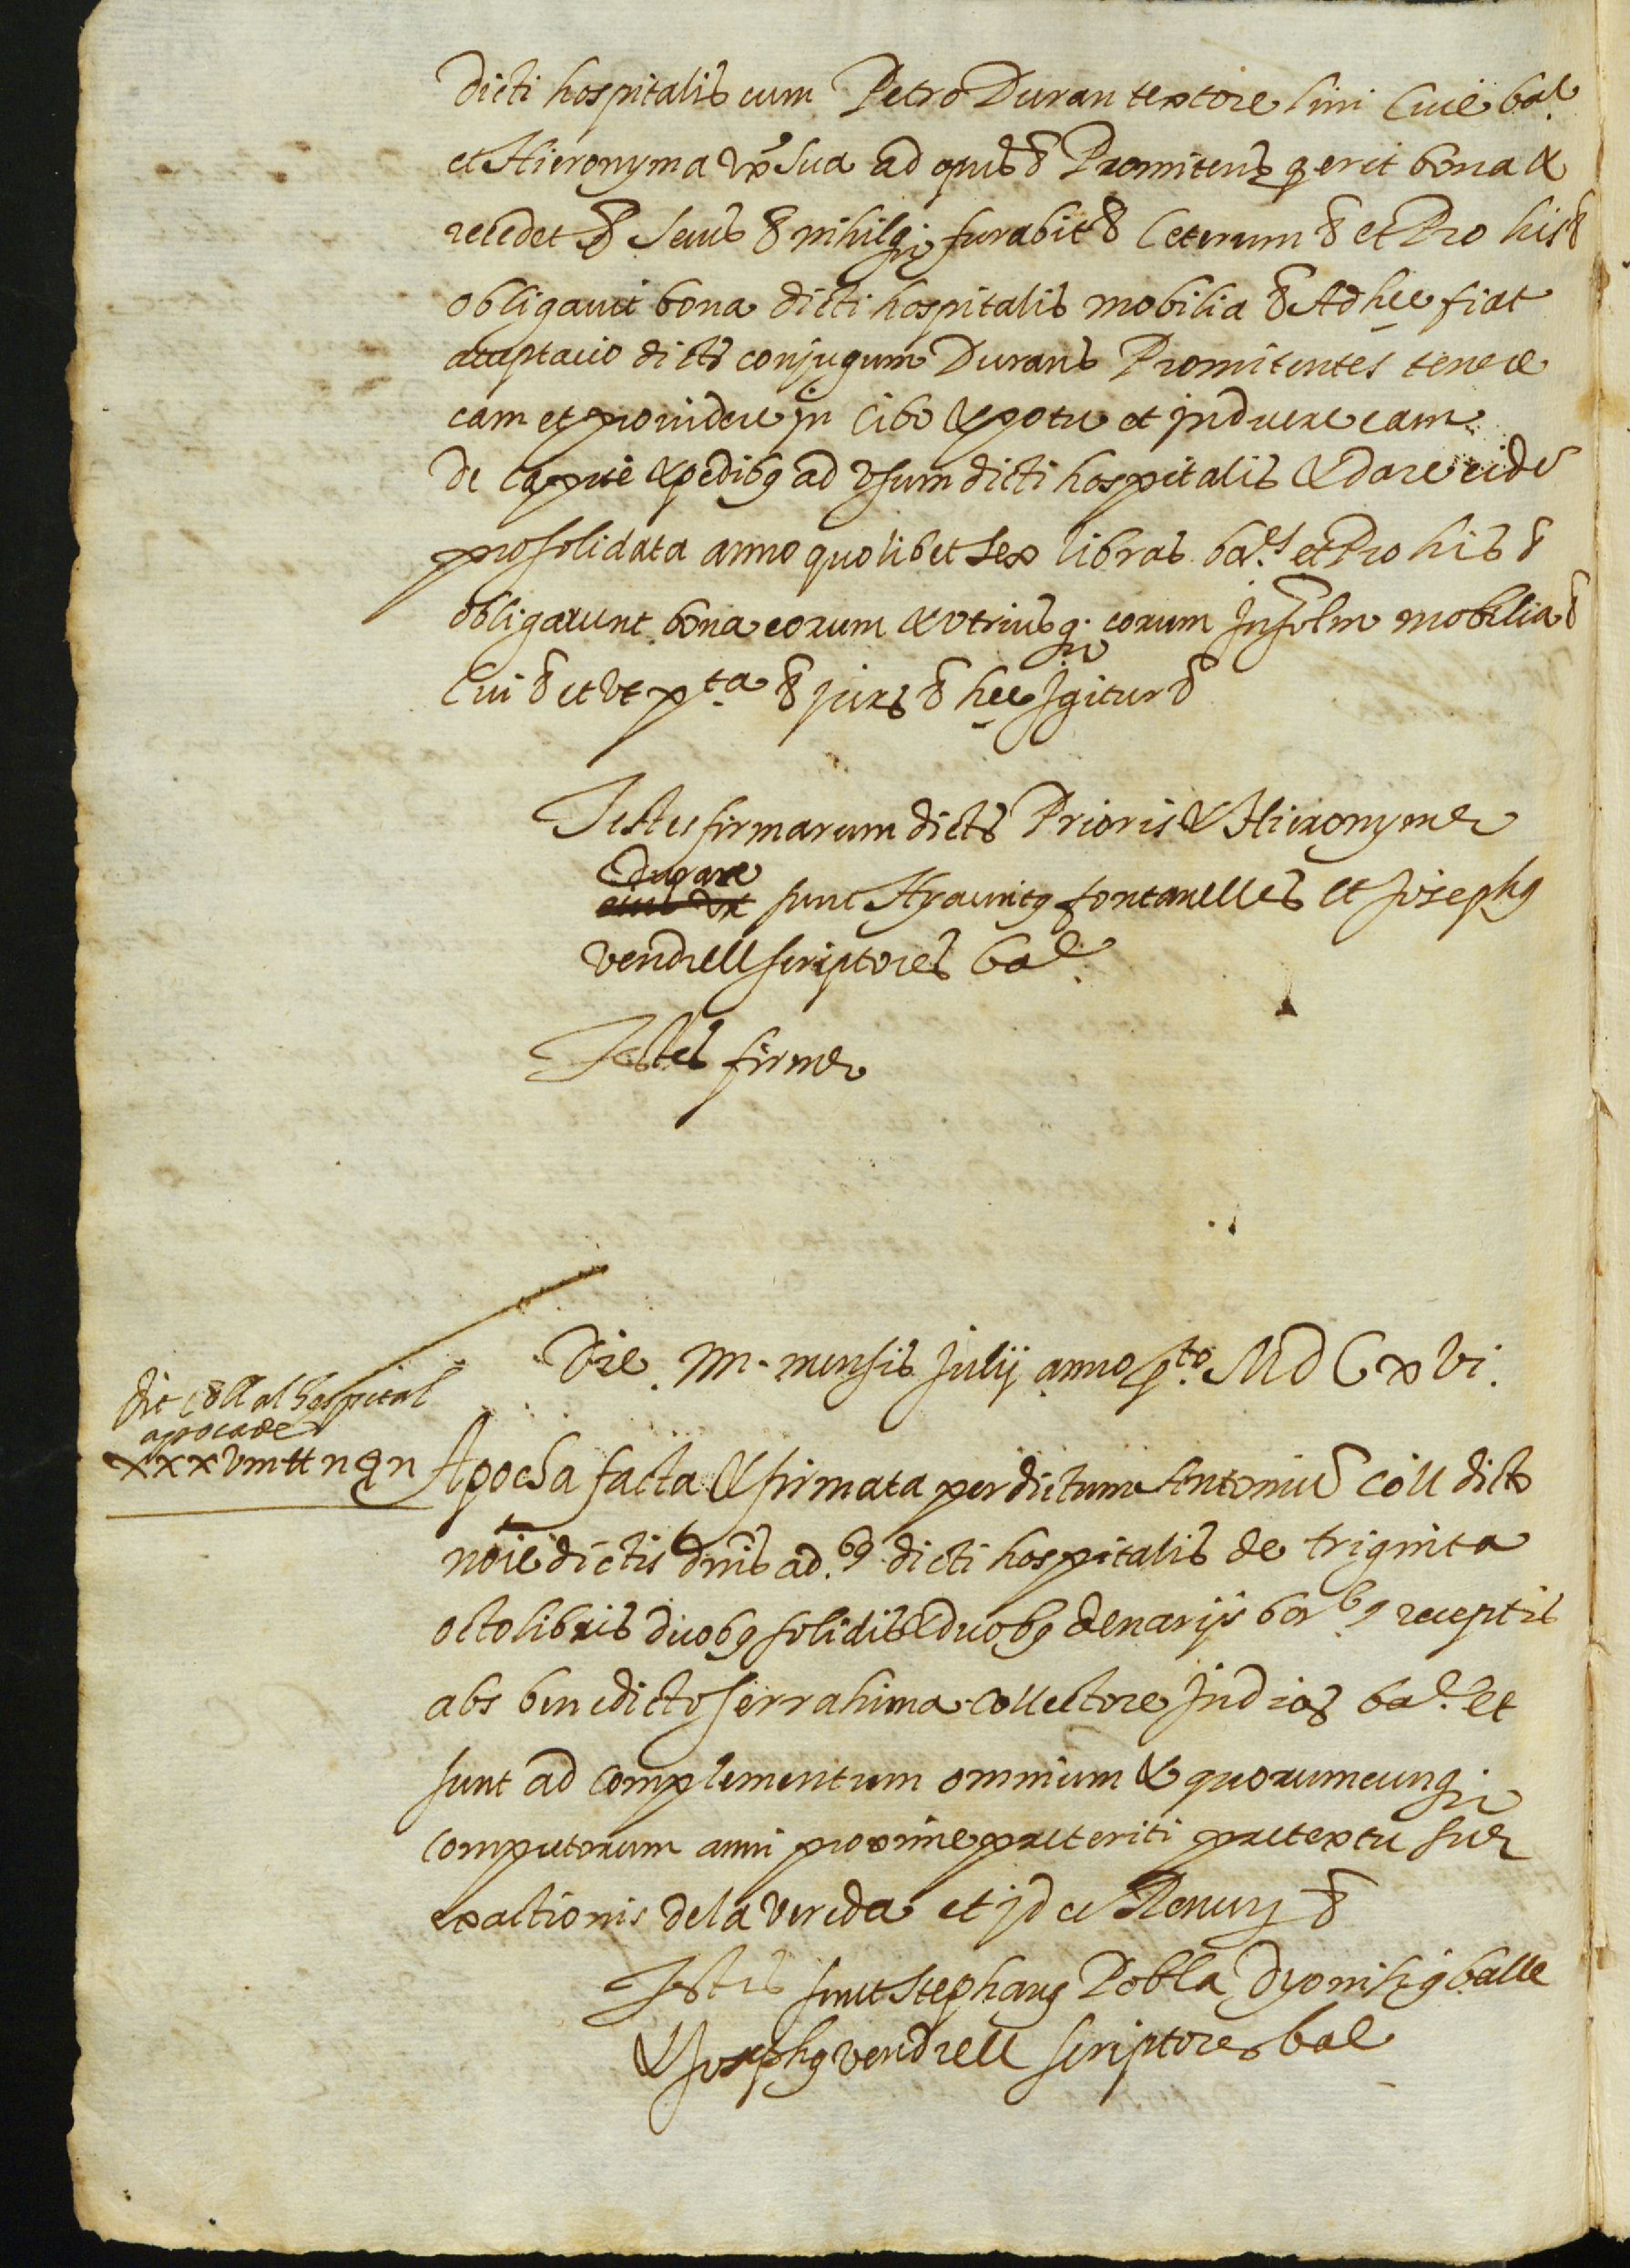 dicti hospitalis cum Petro Duran textore lini Cive bar.
et Hieronyma ux. sua ad opus & Promitens q erit bona &
recedet & sevis & nihilq; furabit & Ceterum & et Pro his &
obligavit bona dicti hospitalis mobilia & Ad hec fiat
acceptacio dictor conjugum Durans Promitentes tenere
eam et providere in cibo & potu et induere eam
de capite & pedibg ad usum dicti hospitalis & dare eidē
pro solidata anno quolibet sex libras bar. et Pro his &
obligarunt bona eorum & utriusq; eorum insolm mobilia &
Cui & et ut pta. & jur & hec igitur &
Testes firmarum dictor Prioris & Hieronyme
Duran
eius ux sunt Hyacintg fontanelles et Josephg
vendrell scriptores bar.
Testes firme
Die IIII mensis Julij anno pto. MDCxvi.
dit Coll al hospital
apoca de
xxxviii tt ii s ii
Apocha facta & firmata per dictum Antoniū Coll dicto
noīe dictis dnis ad.bg dicti hospitalis de triginta
octo libris duobg solidis & duobg denarijs bar.bg receptis
abs benedicto serrahima collectore in dios bar. et
sunt ad complementum omnium & quorumcunq;
computorum anni proxime preteriti pretextu sue
exactionis de la vereda et id ce Renun &
Testes sunt Stephang Pobla Dyonisig balle
& Josephg vendrell scriptores bar